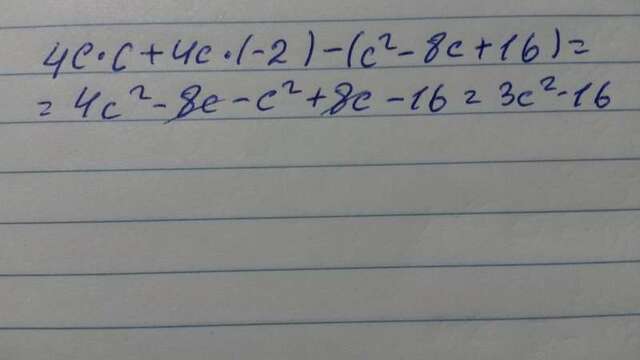 4c·c+4c·(-2)-(c²-8c+16)=
=4c²-8c-c²+8c-16=3c²-16